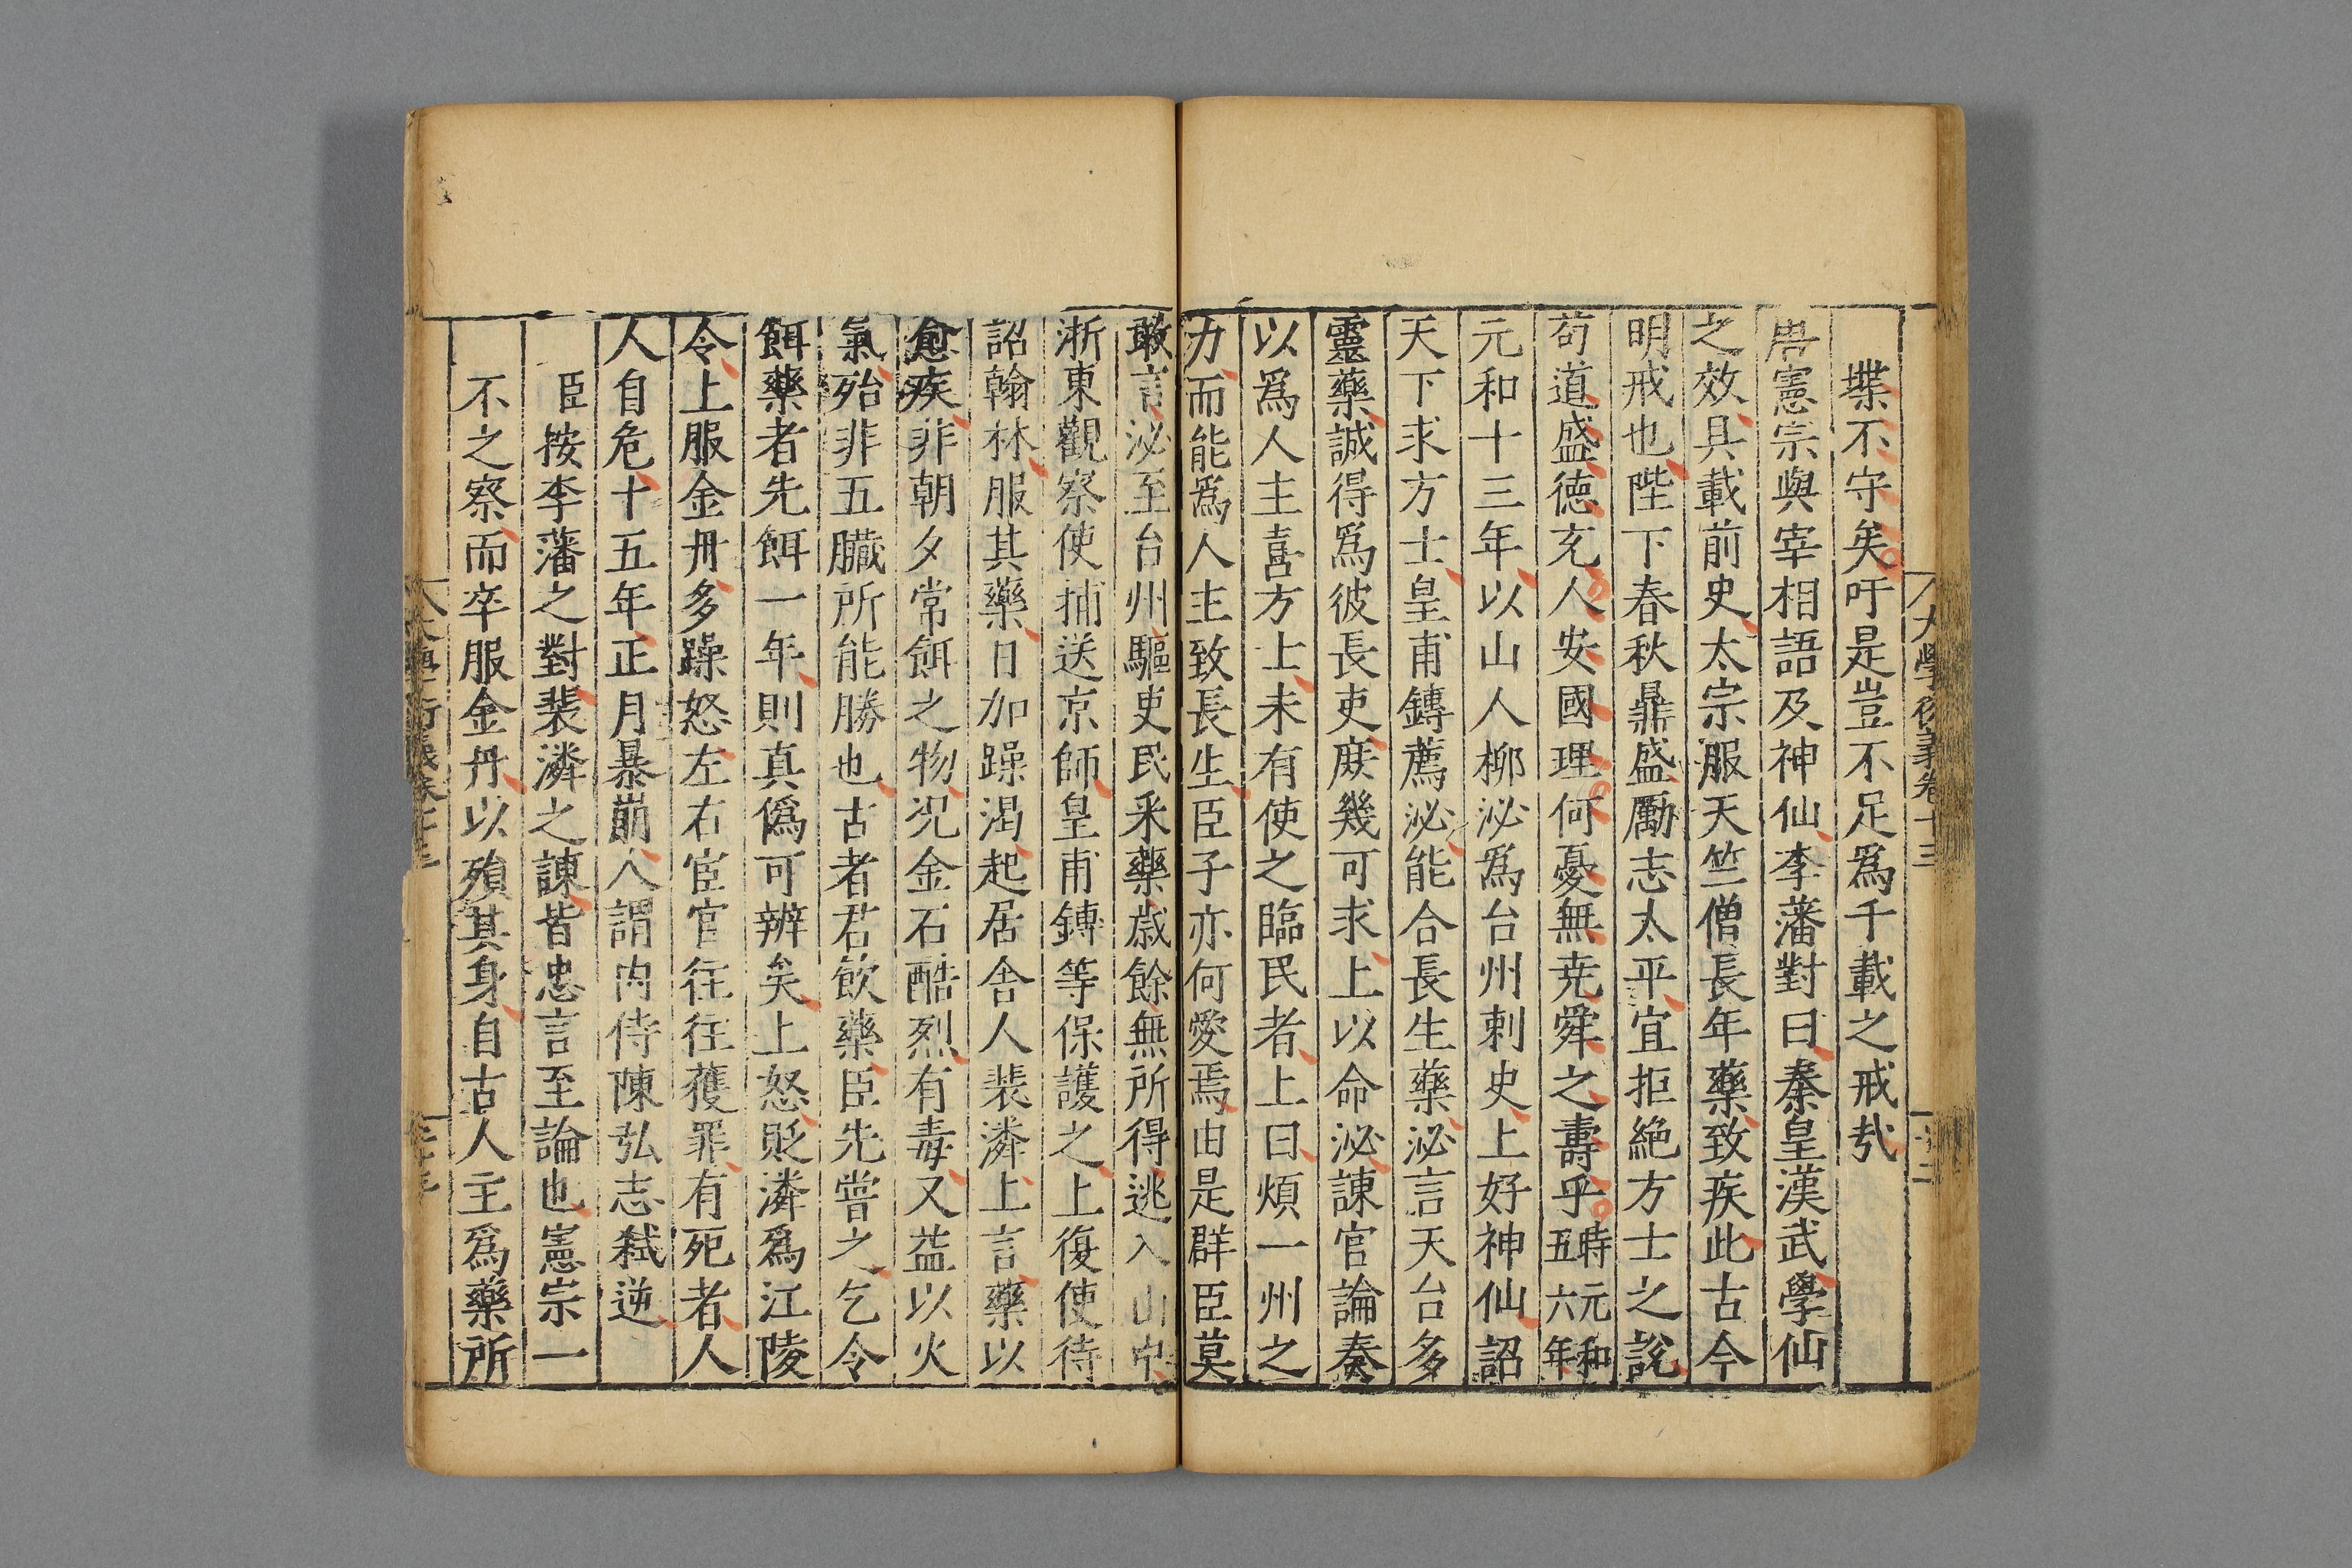 大學衍義卷十三
堞不守矣吁是豈不足爲千載之戒㢤
唐憲宗與宰相語及神仙李藩對曰秦皇漢武學仙
之效具載前史太宗服天竺僧長年藥致疾此古今
明戒也陛下春秋鼎盛勵志太平宜拒絶方士之說
苟道盛德充人安國理何憂無尭舜之壽乎時元和五六年
元和十三年以山人柳泌爲台州刺史上好神仙詔
天下求方士皇甫鏄薦泌能合長生藥泌言天台多
靈藥誠得爲彼長吏庶幾可求上以命泌諫官論奏
以爲人主喜方上未有使之臨民者上曰煩一州之
力而能爲人主致長生臣子亦何愛焉由是群臣莫
敢言泌至台州驅吏民采藥歲餘無所得逃入山中
淅東觀察使捕送京師皇甫鏄等保護之上復使待
詔翰林服其藥日加躁渴起居舍人裴潾上言藥以
愈疾非朝夕常餌之物况金石酷烈有毒又益以火
氣殆非五臓所能勝也古者君飲藥臣先嘗之乞令
餌藥者先餌一年則真偽可辨矣上怒貶潾爲江陵
令上服金丹多躁怒左右宦官往往獲罪有死者人
人自危十五年正月暴崩人謂内侍陳弘志弑逆
臣按李藩之對裴潾之諫皆忠言至論也憲宗一
不之察而卒服金丹以殞其身自古人主爲藥所